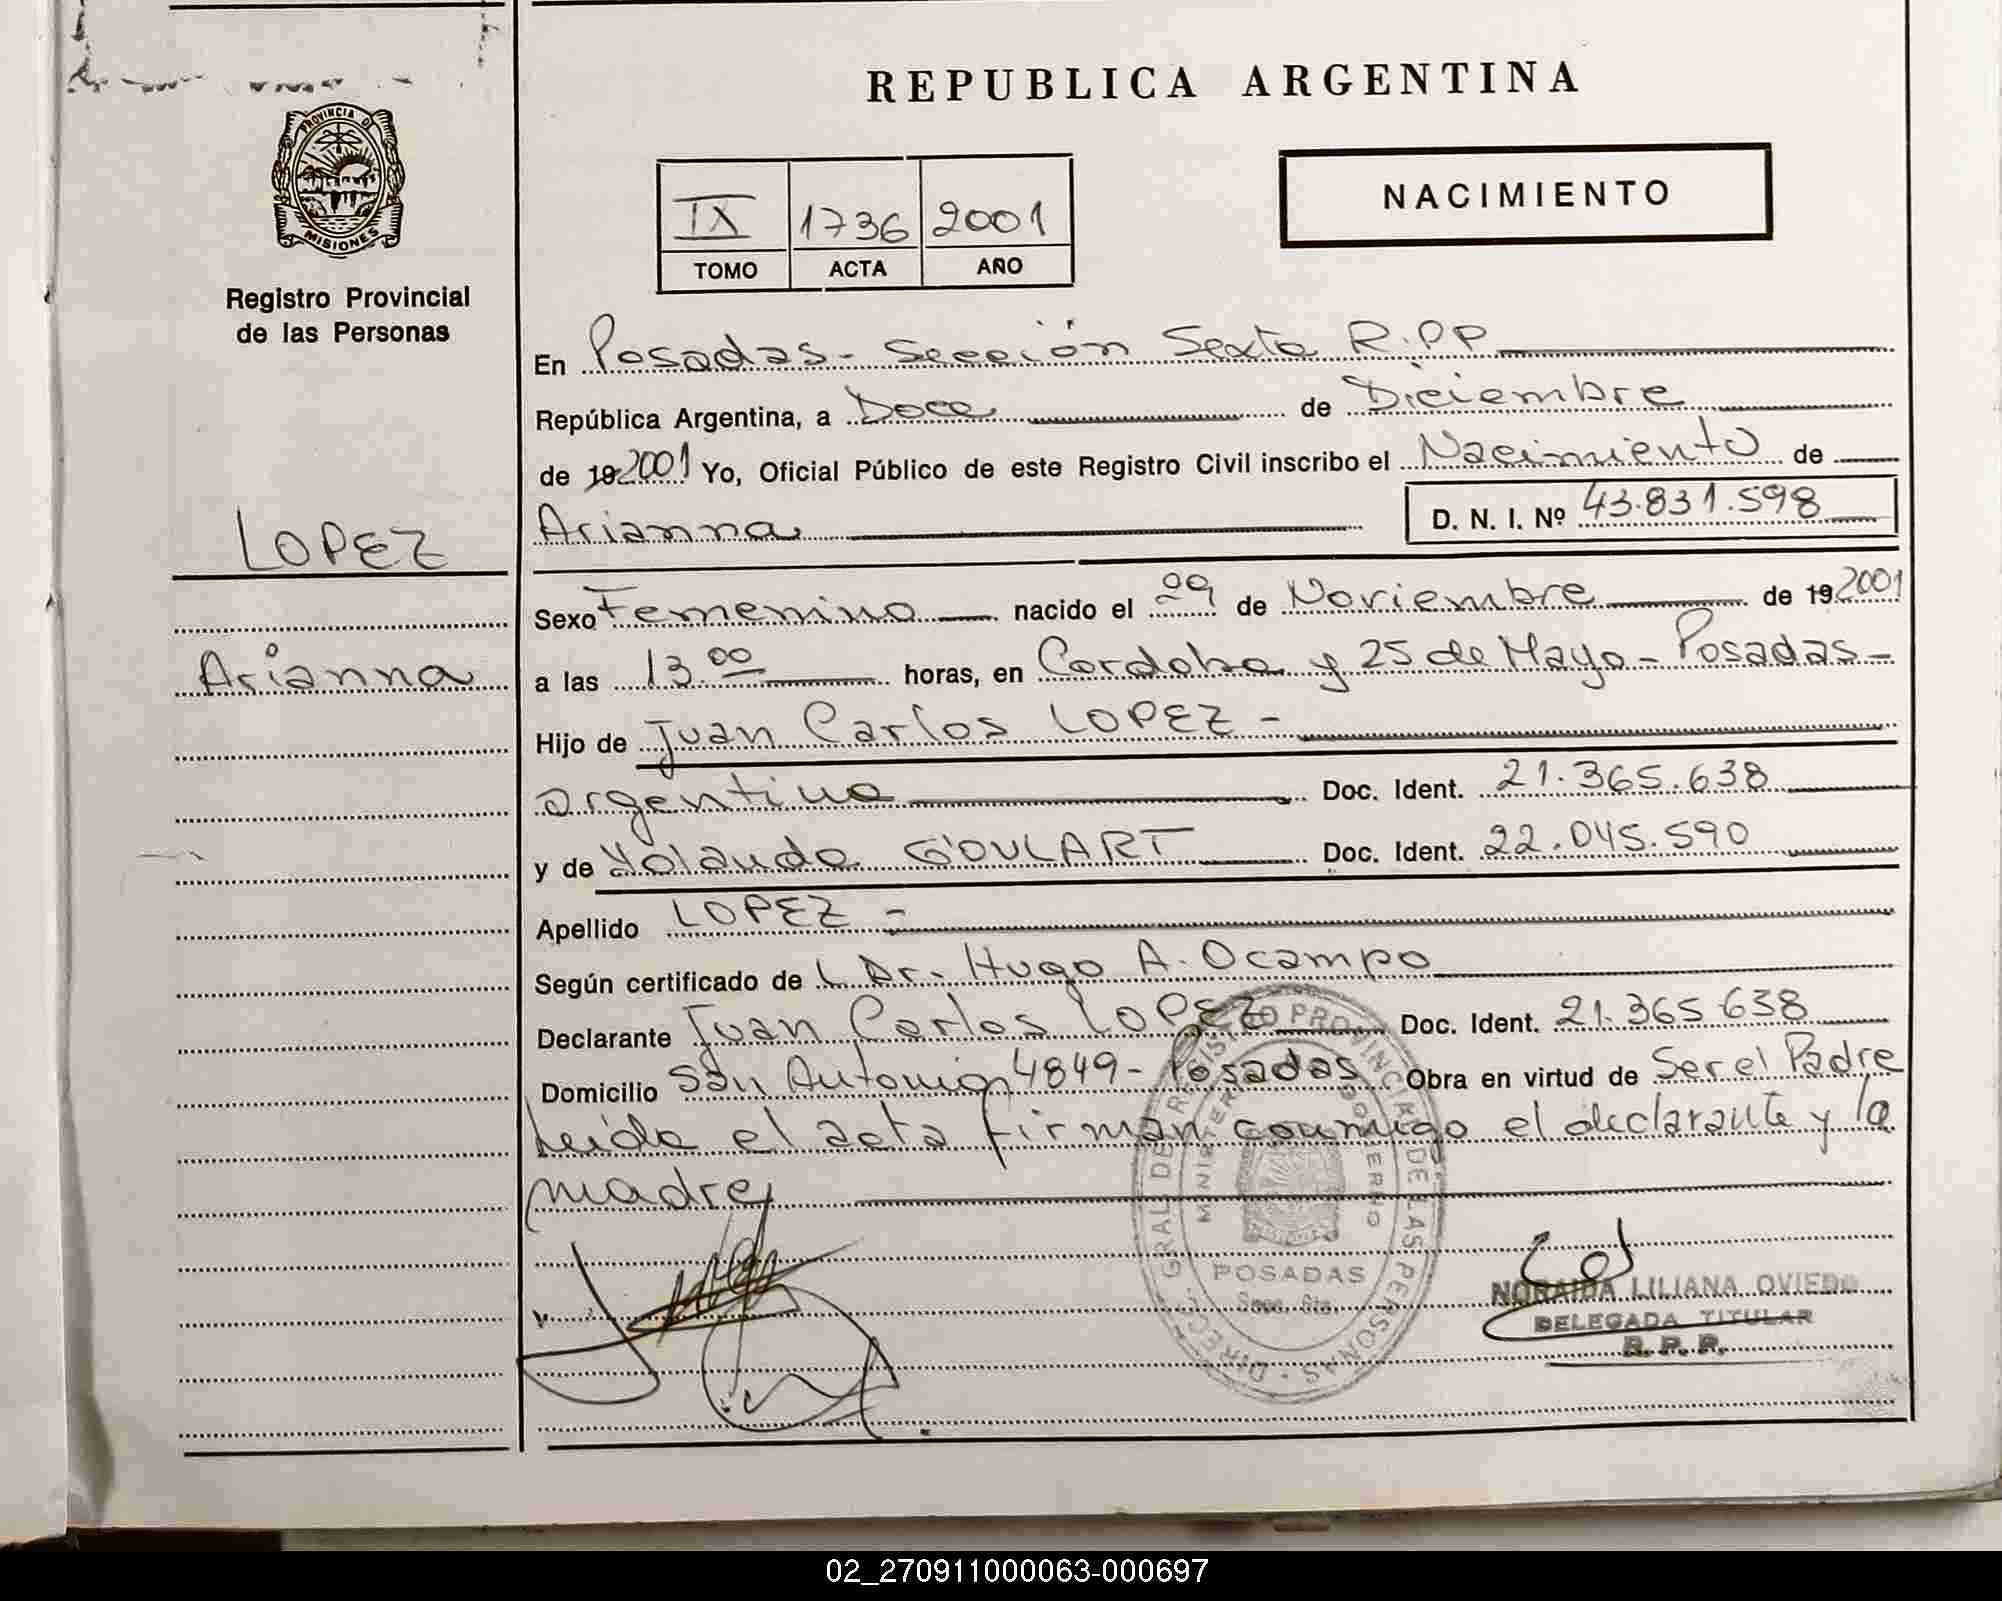 REPUBLICA ARGENTINA
PROVINCIA DE
MISIONES
Registro Provincial
de las Personas
IX 1736 2001
TOMO ACTA AÑO
NACIMIENTO
En Posadas - Sección Sexta R.P.P
República Argentina, a Doce de Diciembre
de 19 2001 Yo, Oficial Público de este Registro Civil inscribo el Nacimiento de
LOPEZ
Arianna
Arianna D. N. I. Nº 43.831.598
Sexo Femenino nacido el 29 de Noviembre de 19 2001
a las 13.00 horas, en Cordoba y 25 de Mayo - Posadas -
Hijo de Juan Carlos LOPEZ -
argentino Doc. Ident. 21.365.638
y de Yolanda GOULART Doc. Ident. 22.045.590
Apellido LOPEZ -
Según certificado de Dr. Hugo A. Ocampo
Declarante Juan Carlos LOPEZ Doc. Ident. 21.365.638
Domicilio San Antonio 4849 - Posadas Obra en virtud de Ser el Padre
Leida el acta firman conmigo el declarante y la
madre
DIREC. GRAL DE REGISTRO PROVINCIAL DE LAS PERSONAS
MINISTERIO GOBIERNO
POSADAS
Secc. 6ta.
NORAIDA LILIANA OVIEDO
DELEGADA TITULAR
R. P. P.
02_270911000063-000697